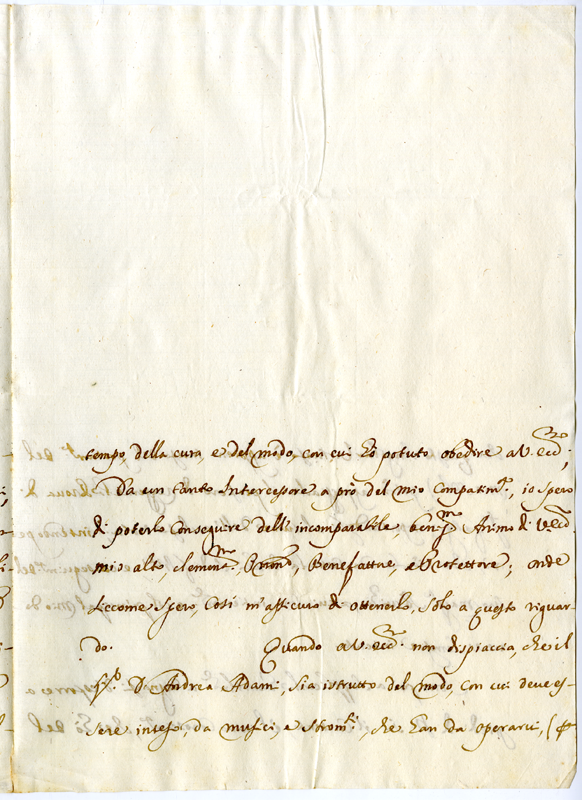 tempo, della cura, e del modo, con cui hò potuto obedire a V. Ecc.za;
Da un tanto Intercessore a prò del mio Compatim.to, io spero
di poterlo Conseguire dell'incomparabile, benig.mo Animo di V. Ecc.za
mio alto, clementiss.mo Benefattore, e Protettore; onde
siccome spero, Così m'assicuro di ottenerlo, Solo a questo riguar-
do. Quando a V. Ecc.za non dispiaccia, che il
S.r D. Andrea Adami, sia istrutto del modo, con cui deve es-
sere inteso, da musici, e strom.ti, che han da operarvi, (p